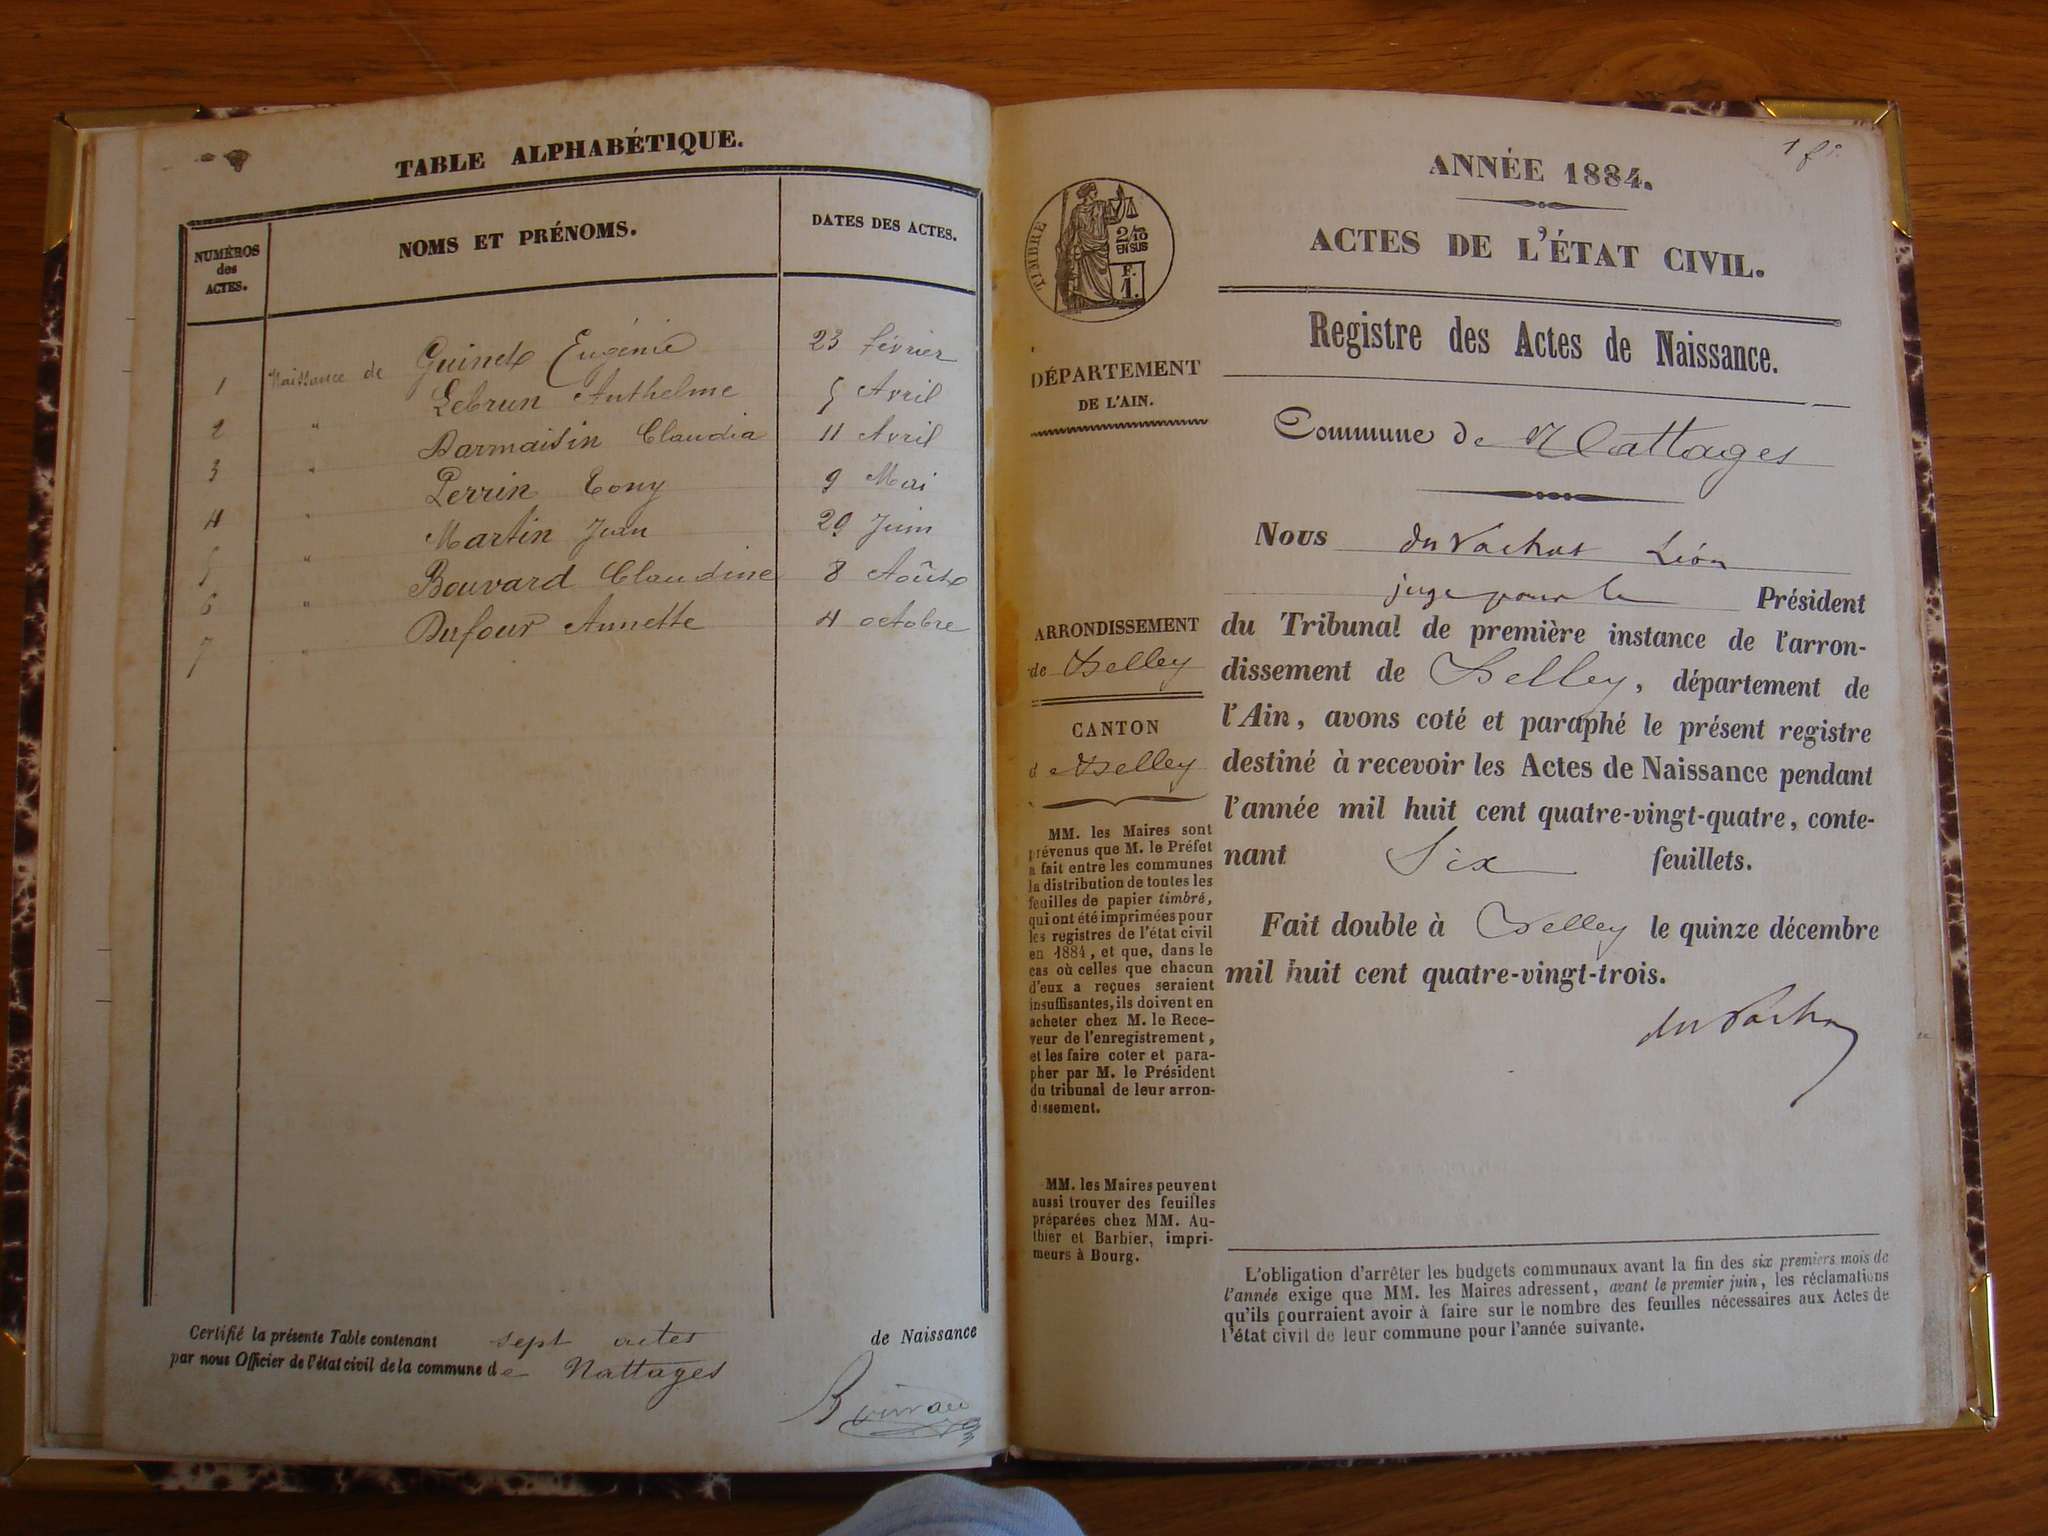 TABLE ALPHABÉTIQUE.
NUMÉROS
des
ACTES.
NOMS ET PRÉNOMS.
DATES DES ACTES.
1 Naissance de Guinet Eugénie 23 février
2 " Lebrun Anthelme 5 Avril
3 " Darmaisin Claudia 11 Avril
4 " Perrin Tony 9 Mai
5 " Martin Jean 29 Juin
6 " Bouvard Claudine 8 Août
7 " Dufour Annette 4 octobre
Certifié la présente Table contenant sept actes de Naissance
par nous Officier de l'état civil de la commune de Nattages
1 f
ANNÉE 1884.
ACTES DE L'ÉTAT CIVIL.
TIMBRE
2/10
EN SUS
F.
1.
Registre des Actes de Naissance.
DÉPARTEMENT
DE L'AIN.
Commune de Nattages
Nous du Vachat Léon
juge pour le Président
du Tribunal de première instance de l'arron-
dissement de Belley, département de
l'Ain, avons coté et paraphé le présent registre
destiné à recevoir les Actes de Naissance pendant
l'année mil huit cent quatre-vingt-quatre, conte-
nant Six feuillets.
Fait double à Belley le quinze décembre
mil huit cent quatre-vingt-trois.
du Vachat
ARRONDISSEMENT
de Belley
CANTON
de Belley
MM. les Maires sont
prévenus que M. le Préfet
a fait entre les communes
la distribution de toutes les
feuilles de papier timbré,
qui ont été imprimées pour
les registres de l'état civil
en 1884, et que, dans le
cas où celles que chacun
d'eux a reçues seraient
insuffisantes, ils doivent en
acheter chez M. le Rece-
veur de l'enregistrement,
et les faire coter et para-
pher par M. le Président
du tribunal de leur arron-
dissement.
MM. les Maires peuvent
aussi trouver des feuilles
préparées chez MM. Au-
thier et Barbier, impri-
meurs à Bourg.
L'obligation d'arrêter les budgets communaux avant la fin des six premiers mois de
l'année exige que MM. les Maires adressent, avant le premier juin, les réclamations
qu'ils pourraient avoir à faire sur le nombre des feuilles nécessaires aux Actes de
l'état civil de leur commune pour l'année suivante.